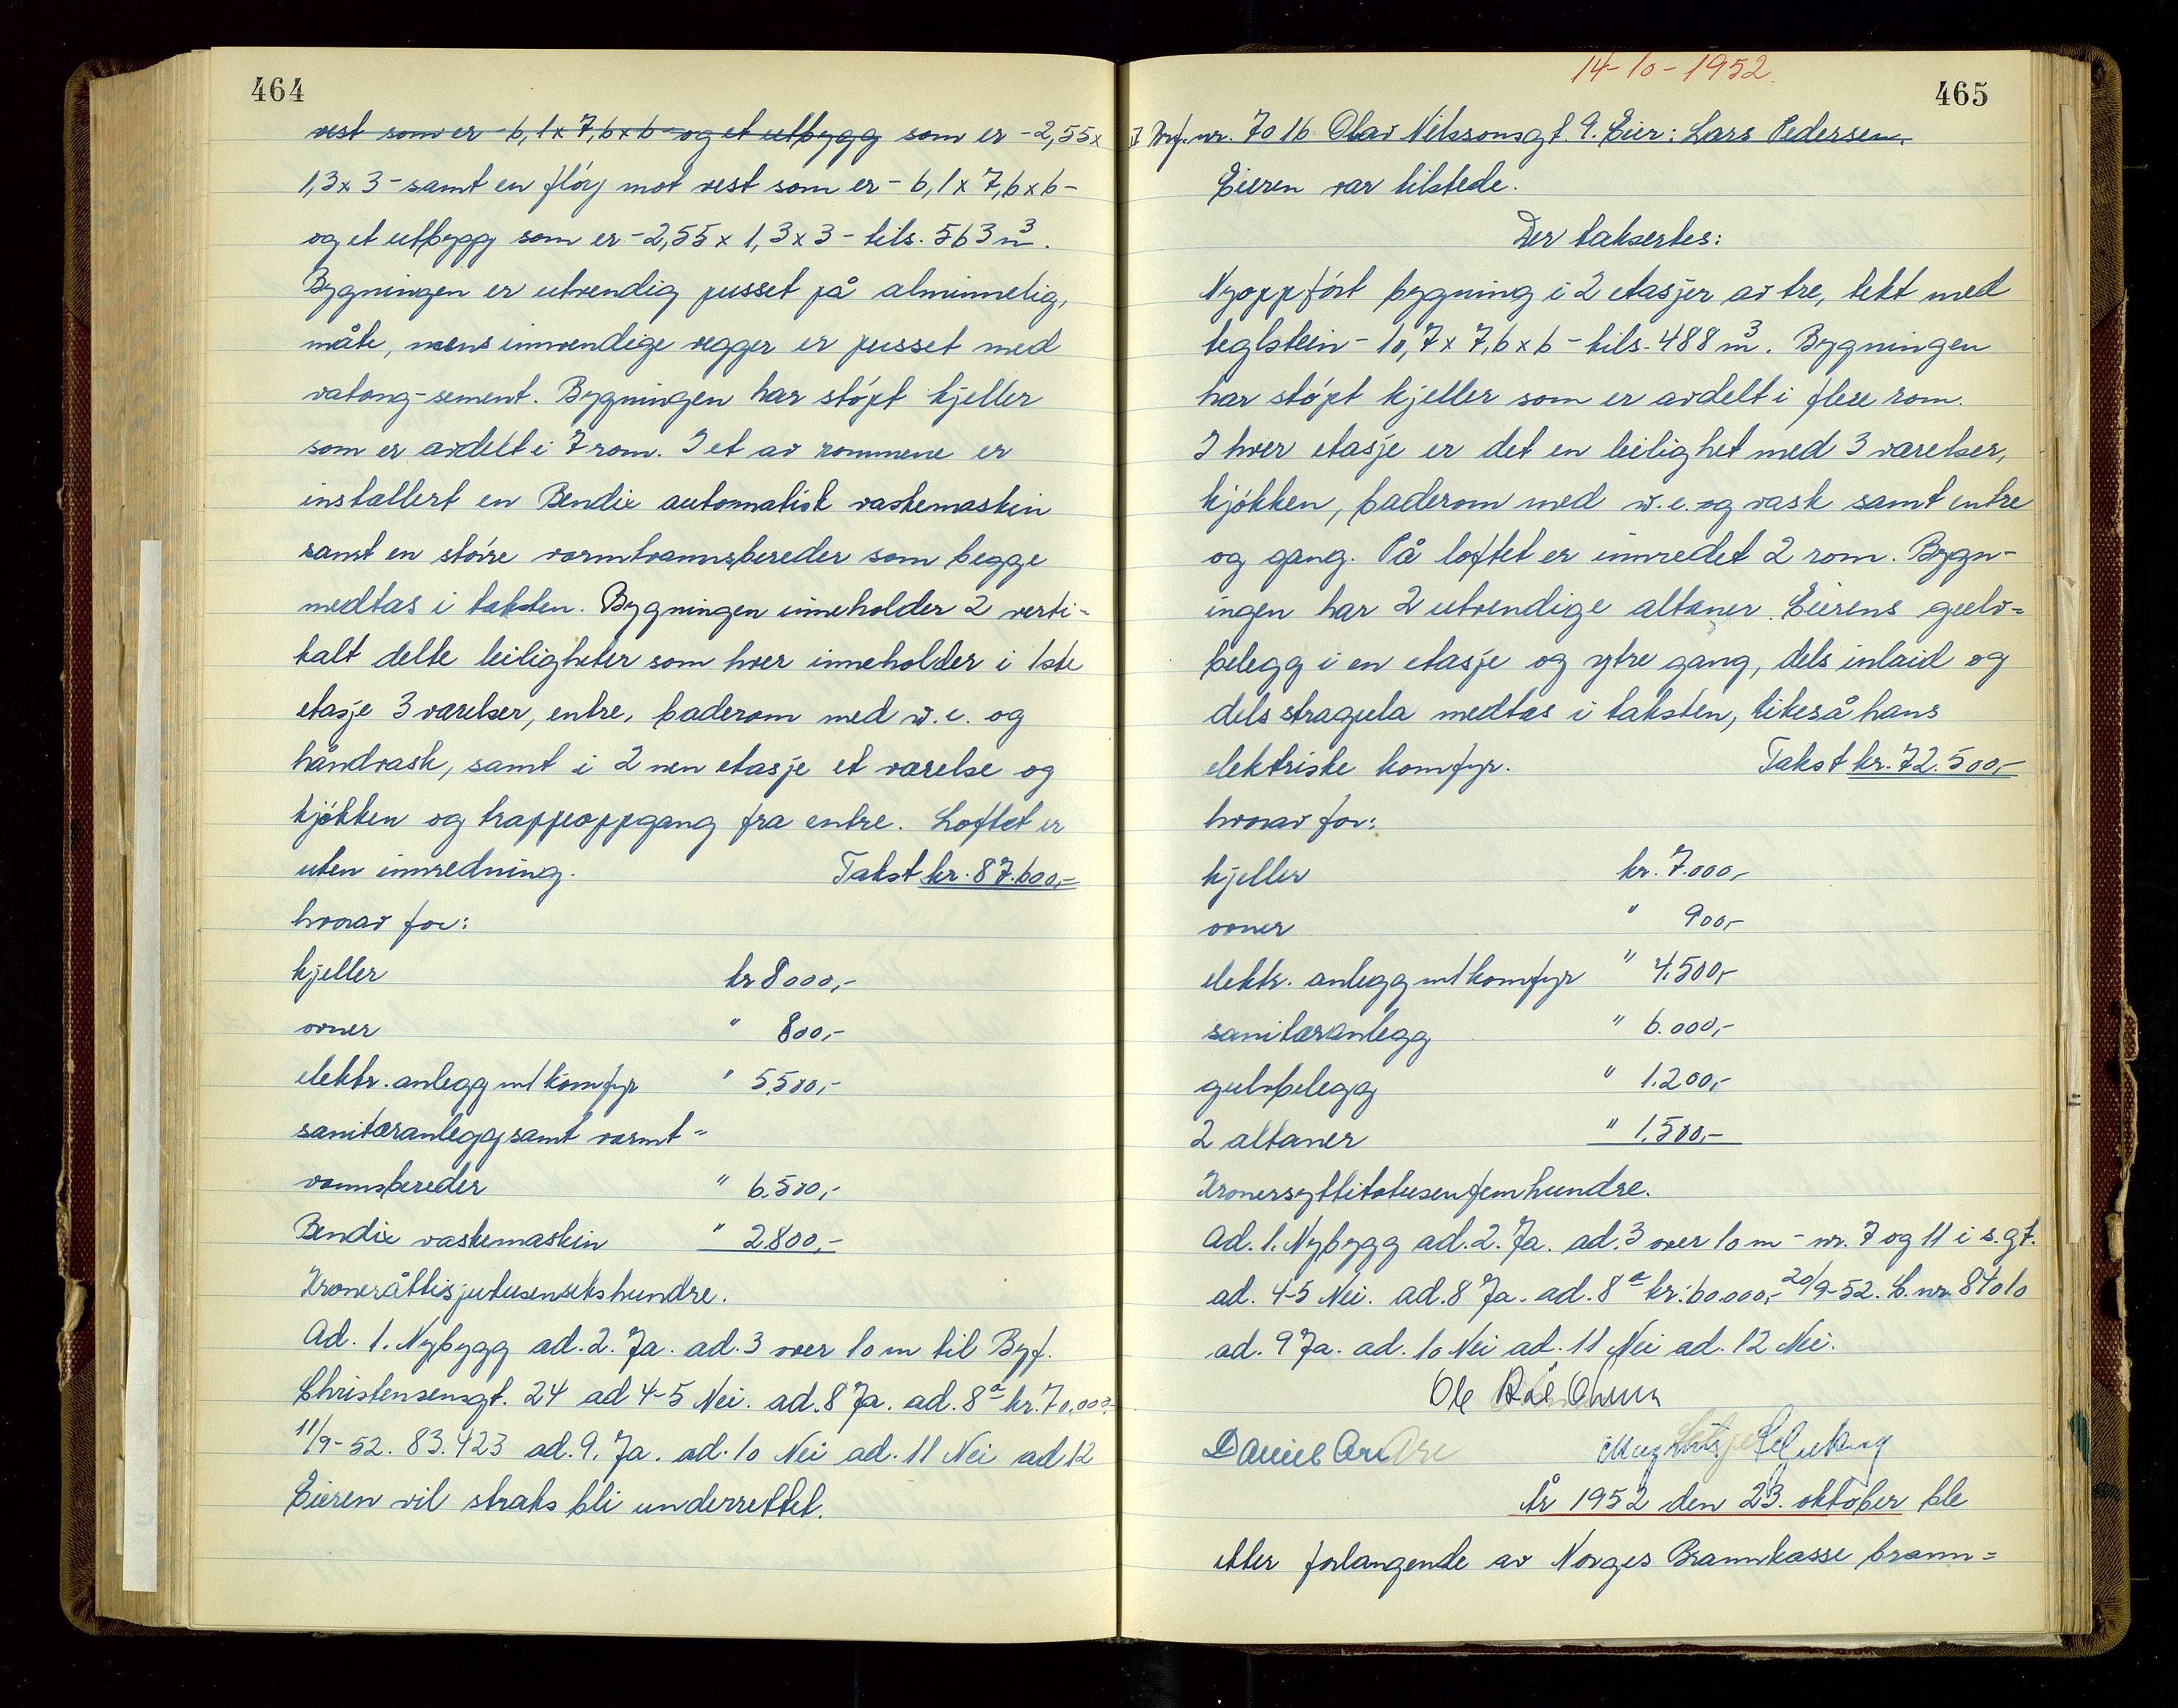 464
vest som er - 6,1 x 7,6 x 6 - og et utbygg som er - 2,55 x
1,3 x 3 - samt en fløy mot vest som er - 6,1 x 7,6 x 6 -
og et utbygg som er - 2,55 x 1,3 x 3 - tils. 563 m³.
Bygningen er utvendig pusset på alminnelig,
måte, mens innvendige vegger er pusset med
vatong-sement. Bygningen har støpt kjeller
som er avdelt i 7 rom. I et av rommene er
installert en Bendix automatisk vaskemaskin
samt en større varmtvannsbereder som begge
medtas i taksten. Bygningen inneholder 2 verti=
kalt delte leiligheter som hver inneholder i 1ste
etasje 3 værelser, entre, baderom med w.c. og
håndvask, samt i 2nen etasje et værelse og
kjøkken og trappeoppgang fra entre. Loftet er
uten innredning. Takst kr. 87.600,-
hvorav for:
kjeller kr 8000,-
ovner " 800,-
elektr. anlegg m/komfyr " 5.500,-
sanitæranlegg samt varmt=
vannsbereder " 6.500,-
Bendix vaskemaskin " 2.800,-
Kroneråttisjutusensekshundre.
Ad. 1. Nybygg ad. 2. Ja. ad. 3 over 10 m til Byf.
Christensensgt. 24 ad 4-5 Nei. ad. 8 Ja. ad. 8ª kr. 70.000,-
11/9-52. 83.423 ad. 9. Ja. ad. 10 Nei ad. 11 Nei ad 12
Eieren vil straks bli underrettet.
14-10-1952.
465
Brf. nr. 7016 Olav Nilssonsgt. 9. Eier: Lars Pedersen.
Eieren var tilstede.
Der taksertes:
Nyoppført bygning i 2 etasjer av tre, tekt med
teglstein - 10,7 x 7,6 x 6 - tils. 488 m³. Bygningen
har støpt kjeller som er avdelt i flere rom.
I hver etasje er det en leilighet med 3 værelser,
kjøkken, baderom med w.c. og vask samt entre
og gang. På loftet er innredet 2 rom. Bygn-
ingen har 2 utvendige altaner. Eierens gulv=
belegg i en etasje og ytre gang, dels inlaid og
dels stragula medtas i taksten, likeså hans
elektriske komfyr. Takst kr. 72.500,-
hvorav for:
kjeller kr. 7.000,-
ovner " 900,-
elektr. anlegg m/komfyr " 4.500,-
sanitæranlegg " 6.000,-
gulvbelegg " 1.200,-
2 altaner " 1.500,-
Kronersyttitotusenfemhundre.
Ad. 1. Nybygg ad. 2. Ja. ad. 3 over 10 m - nr. 7 og 11 i s.gt.
ad. 4-5 Nei. ad. 8 Ja. ad. 8ª kr: 60.000,- 20/9-52. L. nr. 84010
ad. 9 Ja. ad. 10 Nei ad. 11 Nei ad. 12 Nei.
Ole
Daniel
År 1952 den 23. oktober ble
etter forlangende av Norges Brannkasse brann=